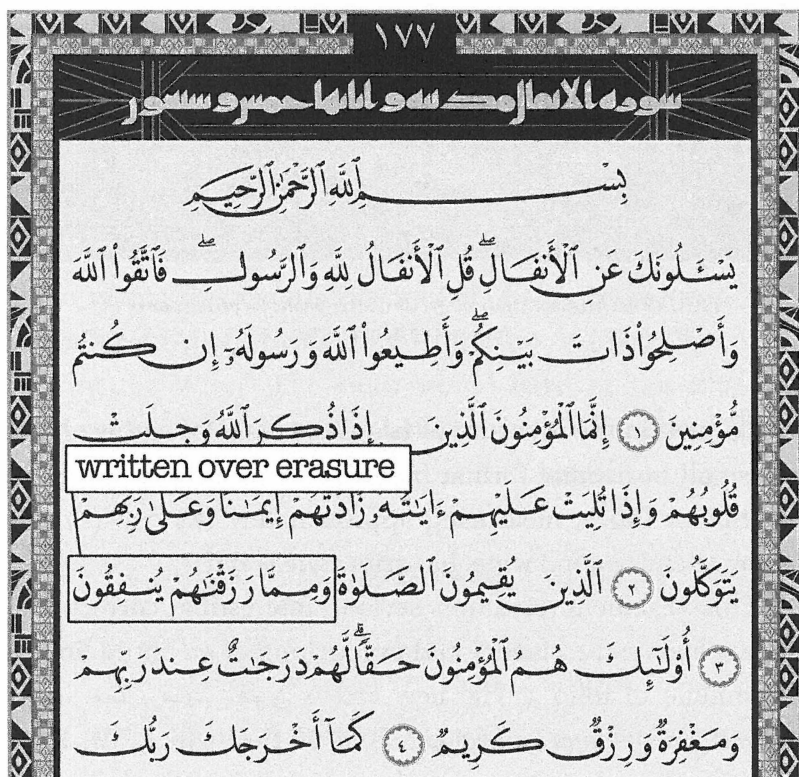 ١٧٧
سورة الانفال مدنية و اياتها خمس و سبعون
بِسْمِ ٱللَّهِ ٱلرَّحْمَٰنِ ٱلرَّحِيمِ
يَسْـَٔلُونَكَ عَنِ ٱلْأَنفَالِۖ قُلِ ٱلْأَنفَالُ لِلَّهِ وَٱلرَّسُولِۖ فَٱتَّقُوا۟ ٱللَّهَ
وَأَصْلِحُوا۟ ذَاتَ بَيْنِكُمْۖ وَأَطِيعُوا۟ ٱللَّهَ وَرَسُولَهُۥٓ إِن كُنتُم
مُّؤْمِنِينَ ١ إِنَّمَا ٱلْمُؤْمِنُونَ ٱلَّذِينَ إِذَا ذُكِرَ ٱللَّهُ وَجِلَتْ
written over erasure
قُلُوبُهُمْ وَإِذَا تُلِيَتْ عَلَيْهِمْ ءَايَٰتُهُۥ زَادَتْهُمْ إِيمَٰنًا وَعَلَىٰ رَبِّهِمْ
يَتَوَكَّلُونَ ٢ ٱلَّذِينَ يُقِيمُونَ ٱلصَّلَوٰةَ وَمِمَّا رَزَقْنَٰهُمْ يُنفِقُونَ
٣ أُو۟لَٰٓئِكَ هُمُ ٱلْمُؤْمِنُونَ حَقًّاۚ لَّهُمْ دَرَجَٰتٌ عِندَ رَبِّهِمْ
وَمَغْفِرَةٌ وَرِزْقٌ كَرِيمٌ ٤ كَمَآ أَخْرَجَكَ رَبُّكَ